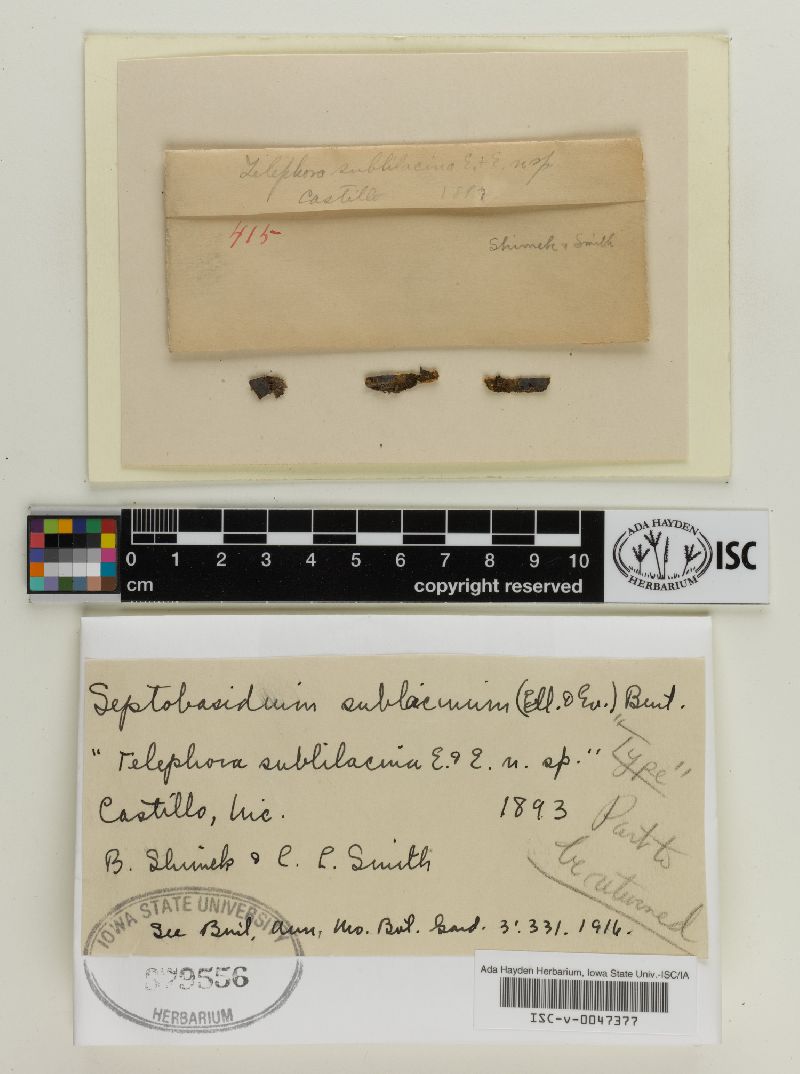 Telephora sublilacina E. & E. n sp
Castillo 1893
415
Shimek & Smith
0 1 2 3 4 5 6 7 8 9 10
cm
copyright reserved
ADA HAYDEN
HERBARIUM
ISC
Septobasidium sublacinum (Ell. & Ev.) Burt.
"Telephora sublilacina E. & E. n. sp." "Type"
Castillo, Nic. 1893
Part to
be returned
B. Shimek & C. L. Smith
See Burt, Ann, Mo. Bot. Gard. 3:331. 1916.
IOWA STATE UNIVERSITY
HERBARIUM
Ada Hayden Herbarium, Iowa State Univ.-ISC/IA
ISC-v-0047377